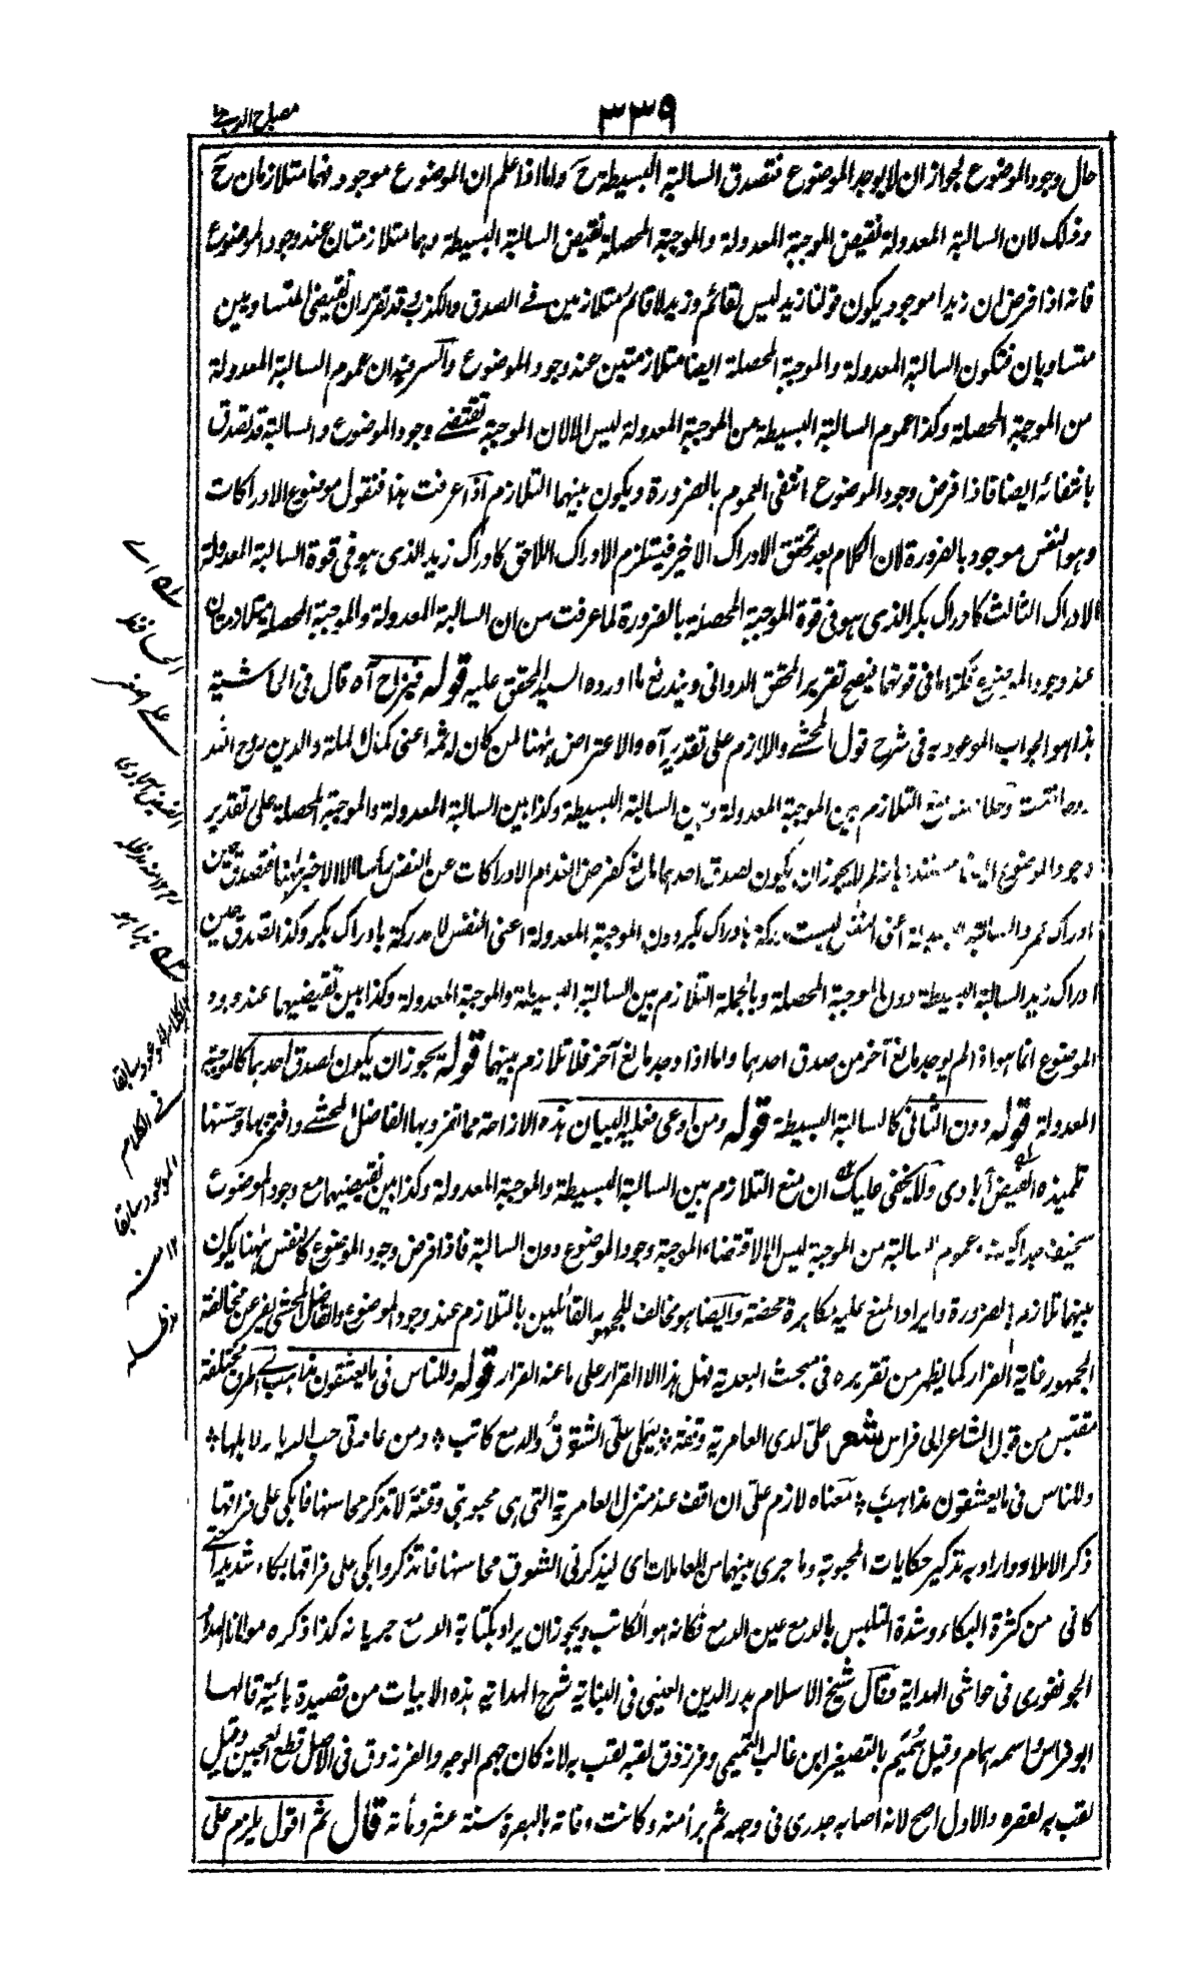 ٣٣٩
مصباح الدجى
حال وجود الموضوع لجواز ان لا يوجد الموضوع فتصدق السالبة البسيطة ح واما اذا علم ان الموضوع موجود فهما متلازمان ح
وذلك لان السالبة المعدولة نقيض الموجبة المعدولة والموجبة المحصلة نقيض السالبة البسيطة وهما متلازمتان عند وجود الموضوع
فانه اذا فرض ان زيدا موجود يكون قولنا زيد ليس بقائم وزيد لا قائم متلازمين في الصدق والكذب وقد تقرر ان نقيضي المتساويين
متساويان فتكون السالبة المعدولة والموجبة المحصلة ايضا متلازمتين عند وجود الموضوع والسر فيه ان عموم السالبة المعدولة
من الموجبة المحصلة وكذا عموم السالبة البسيطة من الموجبة المعدولة ليس الا لان الموجبة تقتضي وجود الموضوع والسالبة قد تصدق
بانتفائه ايضا فاذا فرض وجود الموضوع انتفى العموم بالضرورة ويكون بينهما التلازم اذا عرفت هذا فنقول موضوع الادراكات
وهو النفس موجود بالضرورة لان الكلام بعد تحقق الادراك الاخير فيستلزم الادراك اللاحق كادراك زيد الذي هو في قوة السالبة المعدولة
الادراك الثالث كادراك بكر الذي هو في قوة الموجبة المحصلة بالضرورة لما عرفت من ان السالبة المعدولة والموجبة المحصلة متلازمتان
عند وجود الموضوع فكذا ما في قوتهما فيصح تقرير المحقق الدواني ويندفع ما اورده السيد المحقق عليه قوله فيزاح آه قال في الحاشية
هذا هو الجواب الموعود به في شرح قول المحشي واللازم على تقدير آه والاعتراض ههنا لمن كان له ثمه اعني كمال الملة والدين روح الله
منع التلازم بين الموجبة المعدولة وبين السالبة البسيطة وكذا بين السالبة المعدولة والموجبة المحصلة على تقدير
وجود الموضوع ايضا مستندا بانه لم لا يجوز ان يكون لصدق احدهما مانع كفرض انعدام الادراكات عن النفس رأسا الا الاخير ههنا فتصدق حين
ادراك عمرو السالبة البسيطة اعني النفس ليست مدركة بادراك بكر دون الموجبة المعدولة اعني النفس لا مدركة بادراك بكر وكذا تصدق حين
ادراك زيد السالبة البسيطة دون الموجبة المحصلة وبالجملة التلازم بين السالبة البسيطة والموجبة المعدولة وكذا بين نقيضيهما عند وجود
الموضوع انما هو اذا لم يوجد مانع آخر من صدق احدهما واما اذا وجد مانع آخر فلا تلازم بينهما قوله يجوز ان يكون لصدق احدهما كالموجبة
المعدولة قوله دون الثاني كالسالبة البسيطة قوله ومن ادعى فعليه البيان هذه الازاحة مما تفرد بها الفاضل المحشي وافتخر بها وحسنها
تلميذه الفيض آبادي ولا يخفى عليك ان منع التلازم بين السالبة البسيطة والموجبة المعدولة وكذا بين نقيضيهما مع وجود الموضوع
سخيف جدا عموم السالبة من الموجبة ليس الا لاقتضاء الموجبة وجود الموضوع دون السالبة فاذا فرض وجود الموضوع كالنفس ههنا يكون
بينهما تلازم بالضرورة وايراد المنع عليه مكابرة محضة وايضا هو مخالف للجمهور القائلين بالتلازم عند وجود الموضوع والفاضل المحشي يفر عن مخالفة
الجمهور غاية الفرار كما يظهر من تقريره في مبحث البعدية فهل هذا الا القرار على ما عنه الفرار قوله وللناس في ما يعشقون مذاهب اي طرق مختلفة
مقتبس من قول الشاعر ابي فراس شعر علي لدى العامرية وقفة * يملي علي الشوق والدمع كاتب * ومن عادتي حب الديار لاهلها *
وللناس في ما يعشقون مذاهب * معناه لازم علي ان اقف عند منزل العامرية التي هي محبوبتي وقفة لاتذكر محاسنها فابكي على فراقها
ذكر الاملاء واراد به تذكير حكايات المحبوبة وما جرى بينهما من المعاملات اي ليذكرني الشوق محاسنها فاتذكر وابكي على فراقها بكاء شديدا حتى
كاني من كثرة البكاء وشدة التلبس بالدمع عين الدمع فكانه هو الكاتب ويجوز ان يراد بكتابة الدمع جريانه كذا ذكره مولانا الهداد
الجونفوري في حواشي الهداية وقال شيخ الاسلام بدر الدين العيني في البناية شرح الهداية هذه الابيات من قصيدة بائية قالها
ابو فراس واسمه همام وقيل هميم بالتصغير ابن غالب التميمي وفرزدق لقبه لقب به لانه كان جهم الوجه والفرزدق في الاصل قطع العجين وقيل
لقب به لقصره والاول اصح لانه اصابه جدري في وجهه ثم برأ منه وكانت وفاته بالبصرة سنة عشر ومأة قال ثم اقول يلزم على
اے
الحافظ
علي اصغر
الفيض آبادي
١٢ منه مد ظله
هذا هو
الكلام الموعود سابقا
في الكلام
الموعود سابقا
١٢ منه
مد ظله